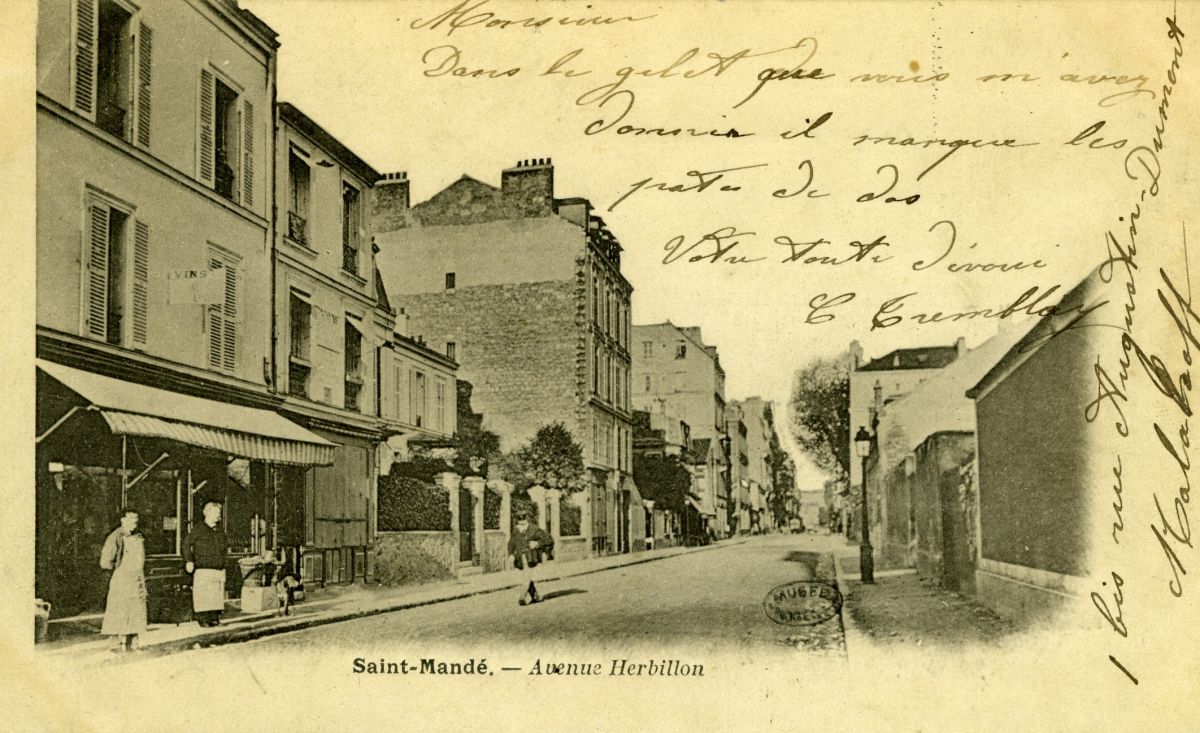 Monsieur
Dans le gilet que vous m'avez
donnée il manque les
pates de dos
Votre toute dévoué
C Tremblay
1 bis rue Augustin-Dumont
Malakoff
VINS
Saint-Mandé. — Avenue Herbillon
MUSÉE